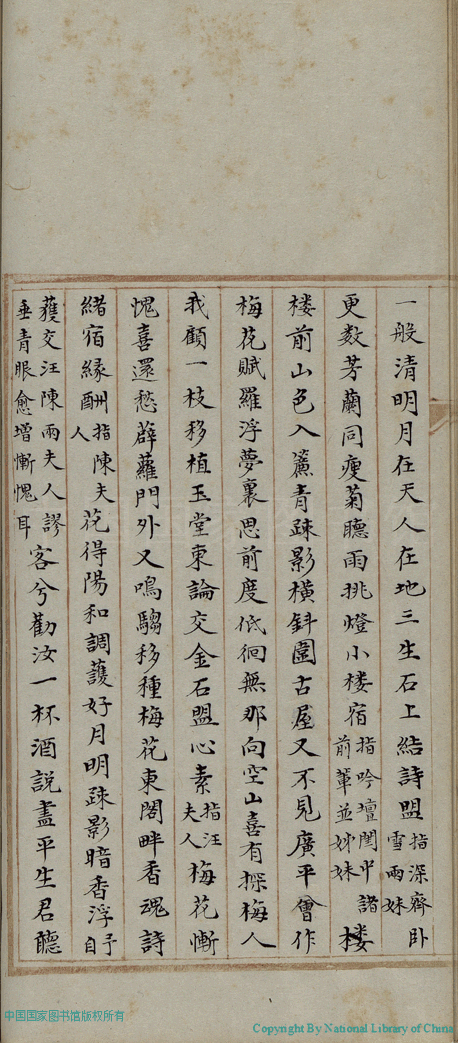 一般清明月在天人在地三生石上結詩盟指深齋卧雪兩妹
更数芳蘭同瘦菊聽雨挑燈小楼宿指吟壇閨中諸前輩並姊妹楼
楼前山色入簾青疎影橫斜園古屋又不見廣平曾作
梅花賦羅浮夢裏思前度低徊無那向空山喜有探梅人
我顧一枝移植玉堂東論交金石盟心素指汪夫人梅花慚
愧喜還愁薜蘿門外又鳴騶移種梅花東閣畔香魂詩
緒宿緣酬指陳夫人花得陽和調護好月明疎影暗香浮予自
蒦交汪陳兩夫人謬垂青眼愈增慚愧耳客兮勸汝一杯酒說盡平生君聽
中国国家图书馆版权所有
Copyright By National Library of China